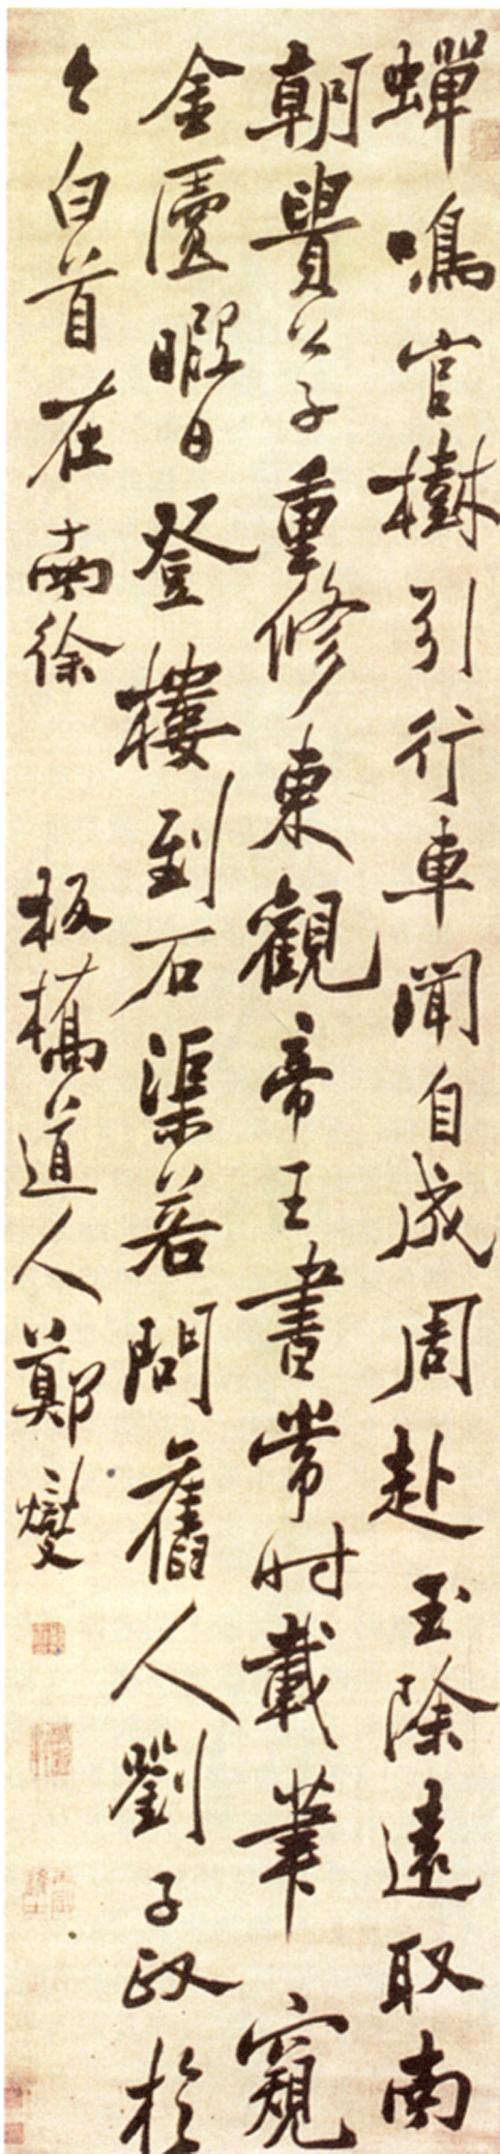 蟬鳴官樹引行車聞自成周赴玉除遠取南
朝貴公子重修東觀帝王書常时載筆窺
金匱暇日登樓到石渠若問舊人劉子政扵
今白首在南徐
板橋道人鄭燮